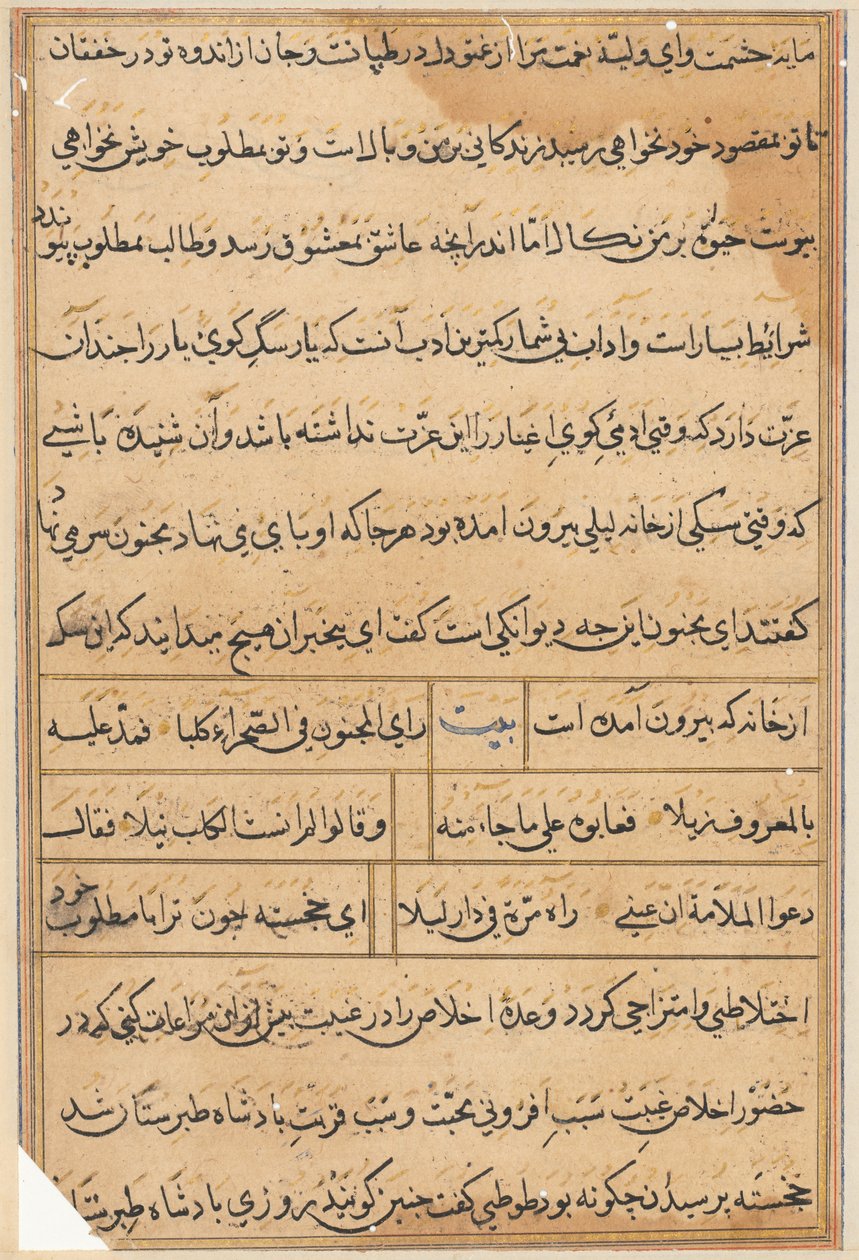 مایه حشمت وای ولیه نعمت مرا از غم تو دل در طپانست و جان از اندوه تو در خفقان
تا تو بمقصود خود نخواهی رسید زندکانی بر من وبال است و تو بمطلوب خویش نخواهی
پیوست حیوة بر من نکال اما اندرانچه عاشق بمعشوق رسد و طالب بمطلوب پیوندد
شرائط بسیار است و اداب بی شمار کمترین ادب آنست که یار سگ کوی یار را چندان
عزت دارد که وقتی ادمئ کوی اغیار را این عزت نداشته باشد و آن شنیده باشی
که وقتی سکی از خانه لیلی بیرون امده بود هر جا که او پای می نهاد مجنون سر می نهاد
کفتند ای مجنون این چه دیوانکی است کفت ای بیخبران هیچ میدانید که این سک
از خانه که بیرون آمده است بیت رای المجنون فی الصحراء کلبا فمد علیه
بالمعروف زیلا فعابوه علی ما جاء منه و قالوا لم انست الکلب نیلا فقال
دعوا الملامة ان عینی راه مرة فی دار لیلا ای خجسته چون ترا با مطلوب خود
اختلاطی و امتزاجی کردد وعده اخلاص را در غیبت بیش از این مراعات کنی که در
حضور اخلاص غیبت سبب افزونی محبت و سبب قربت بادشاه طبرستان شد
خجسته پرسیدن چکونه بود طوطی کفت چنین کویند روزی بادشاه طبرستان